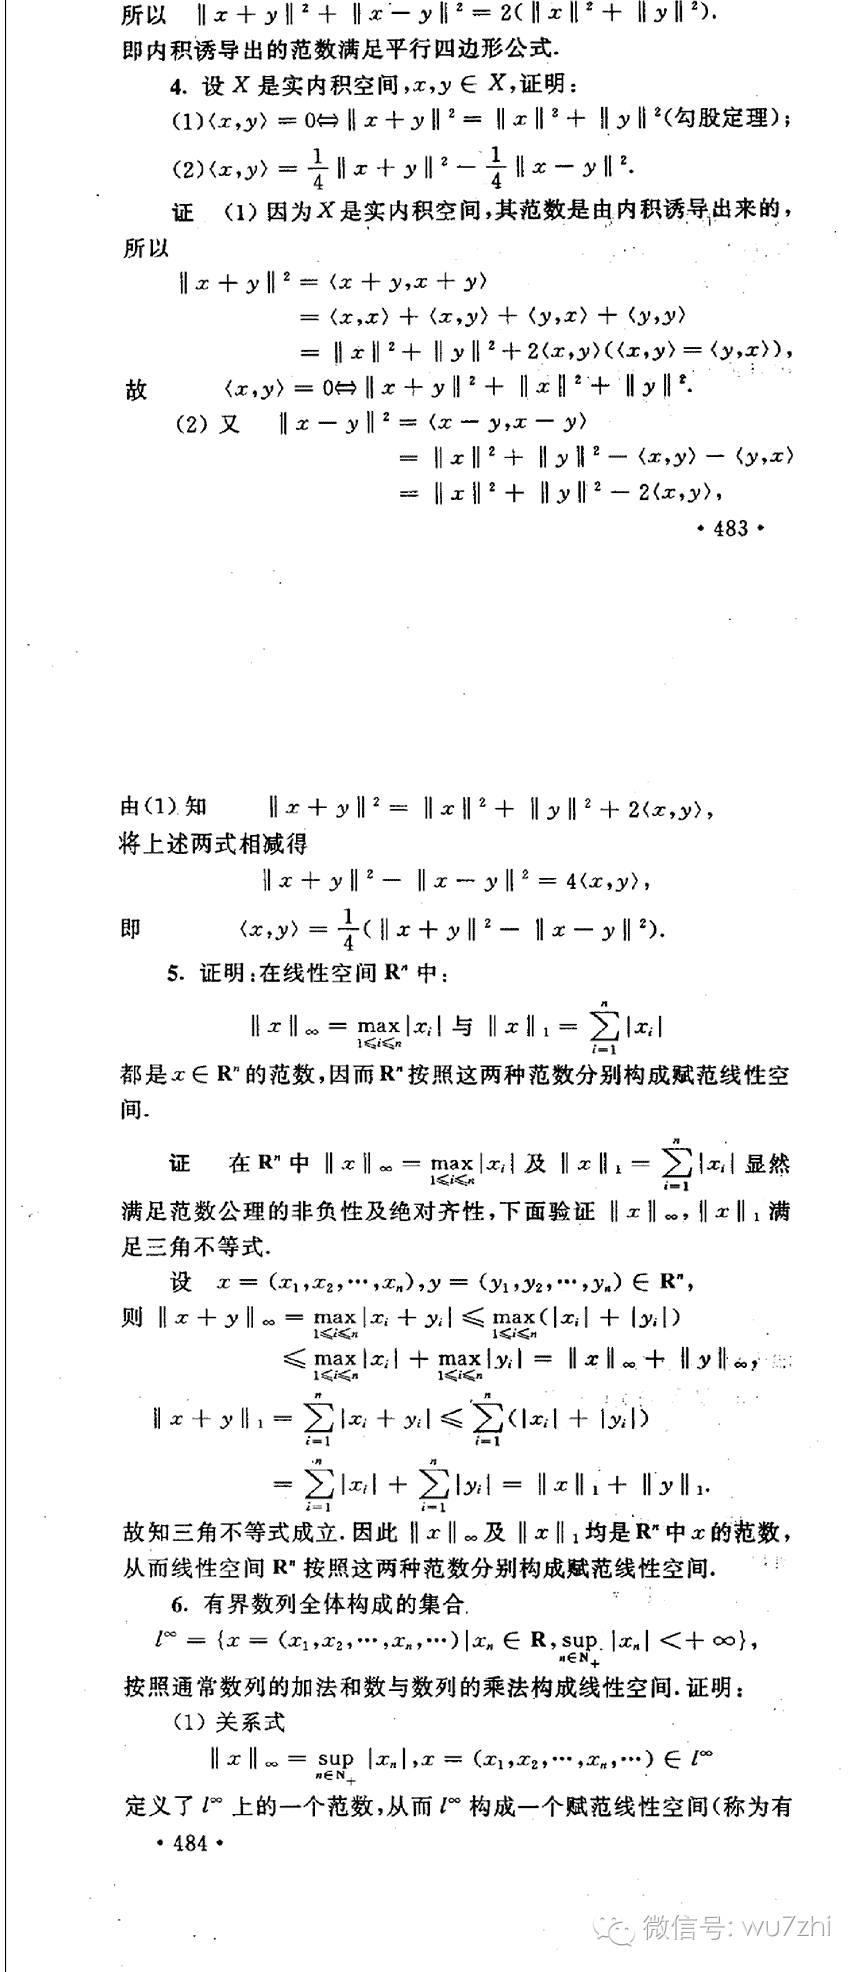 所以 ‖x+y‖²+‖x-y‖²=2(‖x‖²+‖y‖²).
即内积诱导出的范数满足平行四边形公式.
4. 设 X 是实内积空间,x,y∈X,证明:
(1)⟨x,y⟩=0⇔‖x+y‖²=‖x‖²+‖y‖²(勾股定理);
(2)⟨x,y⟩=1/4‖x+y‖²-1/4‖x-y‖².
证 (1)因为X是实内积空间,其范数是由内积诱导出来的,
所以
‖x+y‖²=⟨x+y,x+y⟩
=⟨x,x⟩+⟨x,y⟩+⟨y,x⟩+⟨y,y⟩
=‖x‖²+‖y‖²+2⟨x,y⟩(⟨x,y⟩=⟨y,x⟩),
故 ⟨x,y⟩=0⇔‖x+y‖²+‖x‖²+‖y‖².
(2)又 ‖x-y‖²=⟨x-y,x-y⟩
=‖x‖²+‖y‖²-⟨x,y⟩-⟨y,x⟩
=‖x‖²+‖y‖²-2⟨x,y⟩,
·483·
由(1)知 ‖x+y‖²=‖x‖²+‖y‖²+2⟨x,y⟩,
将上述两式相减得
‖x+y‖²-‖x-y‖²=4⟨x,y⟩,
即 ⟨x,y⟩=1/4(‖x+y‖²-‖x-y‖²).
5. 证明:在线性空间 Rⁿ 中:
‖x‖∞=max_{1≤i≤n}|xᵢ| 与 ‖x‖₁=∑_{i=1}^{n}|xᵢ|
都是x∈Rⁿ的范数,因而Rⁿ按照这两种范数分别构成赋范线性空
间.
证 在Rⁿ中 ‖x‖∞=max_{1≤i≤n}|xᵢ| 及 ‖x‖₁=∑_{i=1}^{n}|xᵢ| 显然
满足范数公理的非负性及绝对齐性,下面验证 ‖x‖∞,‖x‖₁满
足三角不等式.
设 x=(x₁,x₂,…,xₙ),y=(y₁,y₂,…,yₙ)∈Rⁿ,
则 ‖x+y‖∞=max_{1≤i≤n}|xᵢ+yᵢ|≤max_{1≤i≤n}(|xᵢ|+|yᵢ|)
≤max_{1≤i≤n}|xᵢ|+max_{1≤i≤n}|yᵢ|=‖x‖∞+‖y‖∞,
‖x+y‖₁=∑_{i=1}^{n}|xᵢ+yᵢ|≤∑_{i=1}^{n}(|xᵢ|+|yᵢ|)
=∑_{i=1}^{n}|xᵢ|+∑_{i=1}^{n}|yᵢ|=‖x‖₁+‖y‖₁.
故知三角不等式成立.因此 ‖x‖∞及 ‖x‖₁均是Rⁿ中x的范数,
从而线性空间 Rⁿ 按照这两种范数分别构成赋范线性空间.
6. 有界数列全体构成的集合
l^∞={x=(x₁,x₂,…,xₙ,…)|xₙ∈R,sup_{n∈N₊}|xₙ|<+∞},
按照通常数列的加法和数与数列的乘法构成线性空间.证明:
(1)关系式
‖x‖∞=sup_{n∈N₊}|xₙ|,x=(x₁,x₂,…,xₙ,…)∈l^∞
定义了 l^∞ 上的一个范数,从而 l^∞ 构成一个赋范线性空间(称为有
·484·
微信号: wu7zhi